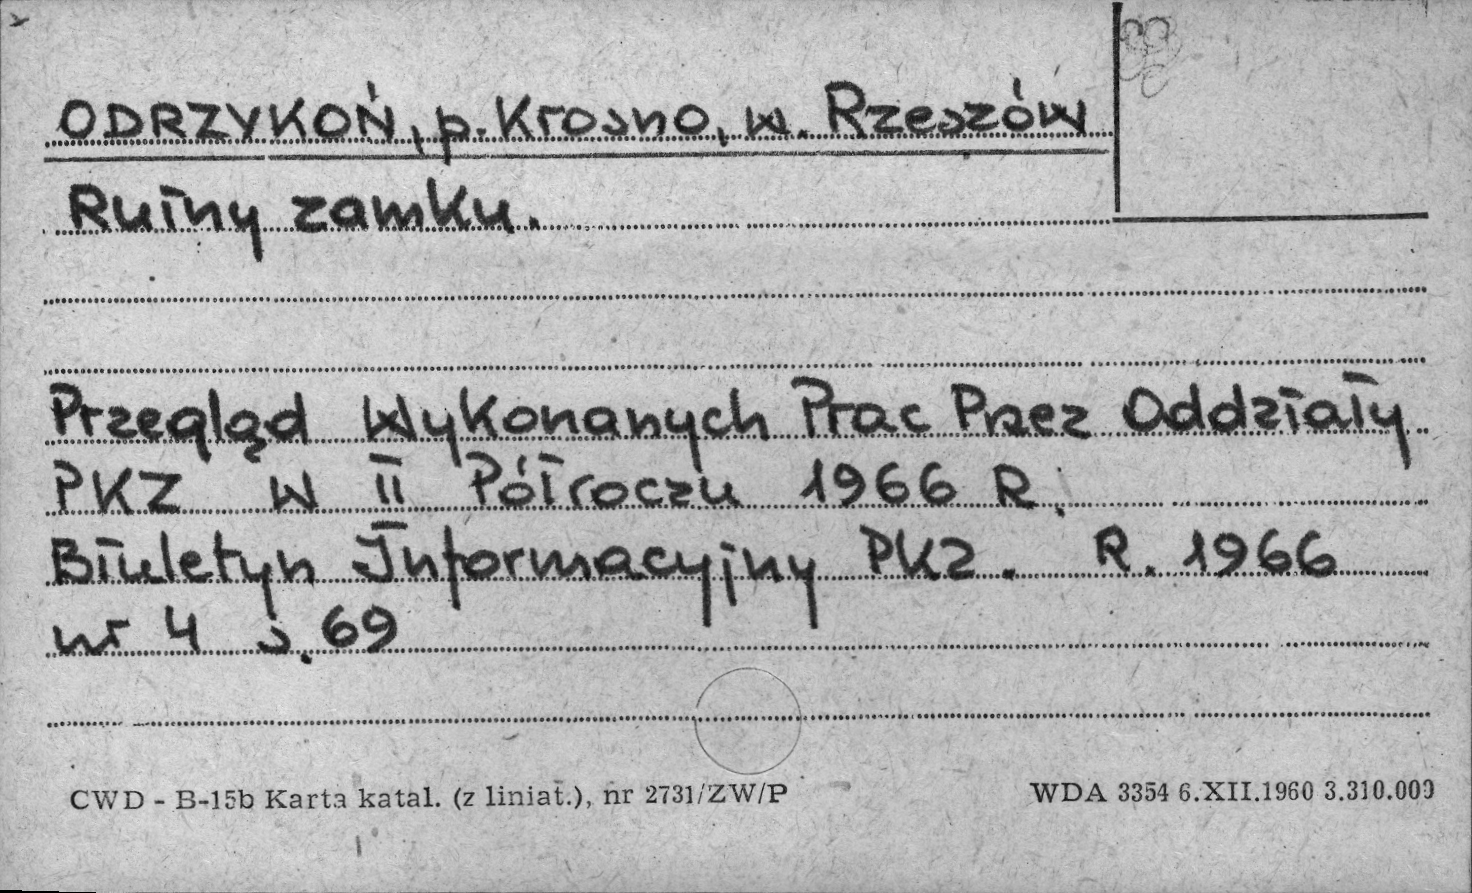 ODRZYKOŃ, p. Krosno, w. Rzeszów
Ruiny zamku.
Przegląd Wykonanych Prac Przez Oddziały
PKZ w II Półroczu 1966 R.
Biuletyn Informacyjny PKZ. R. 1966
nr 4 s. 69
CWD - B-15b Karta katal. (z liniat.), nr 2731/ZW/P
WDA 3354 6.XII.1960 3.310.000